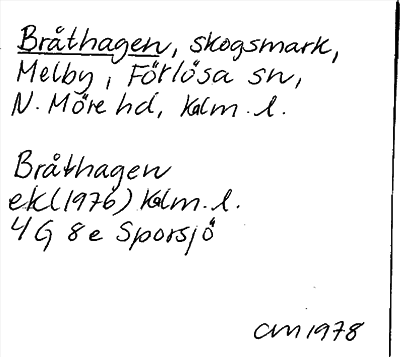 Bråthagen, skogsmark,
Melby, Förlösa sn,
N. Möre hd, Kalm. l.
Bråthagen
ek(1976) Kalm. l.
4G 8e Sporsjö
CM 1978